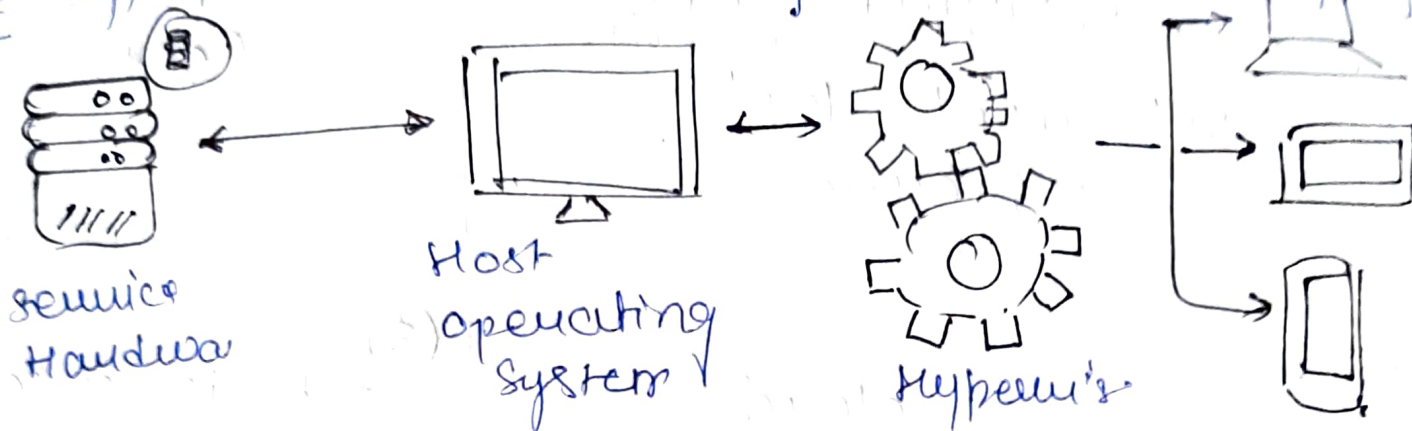 service
Hardwa
Host
operating
System
Hypervis